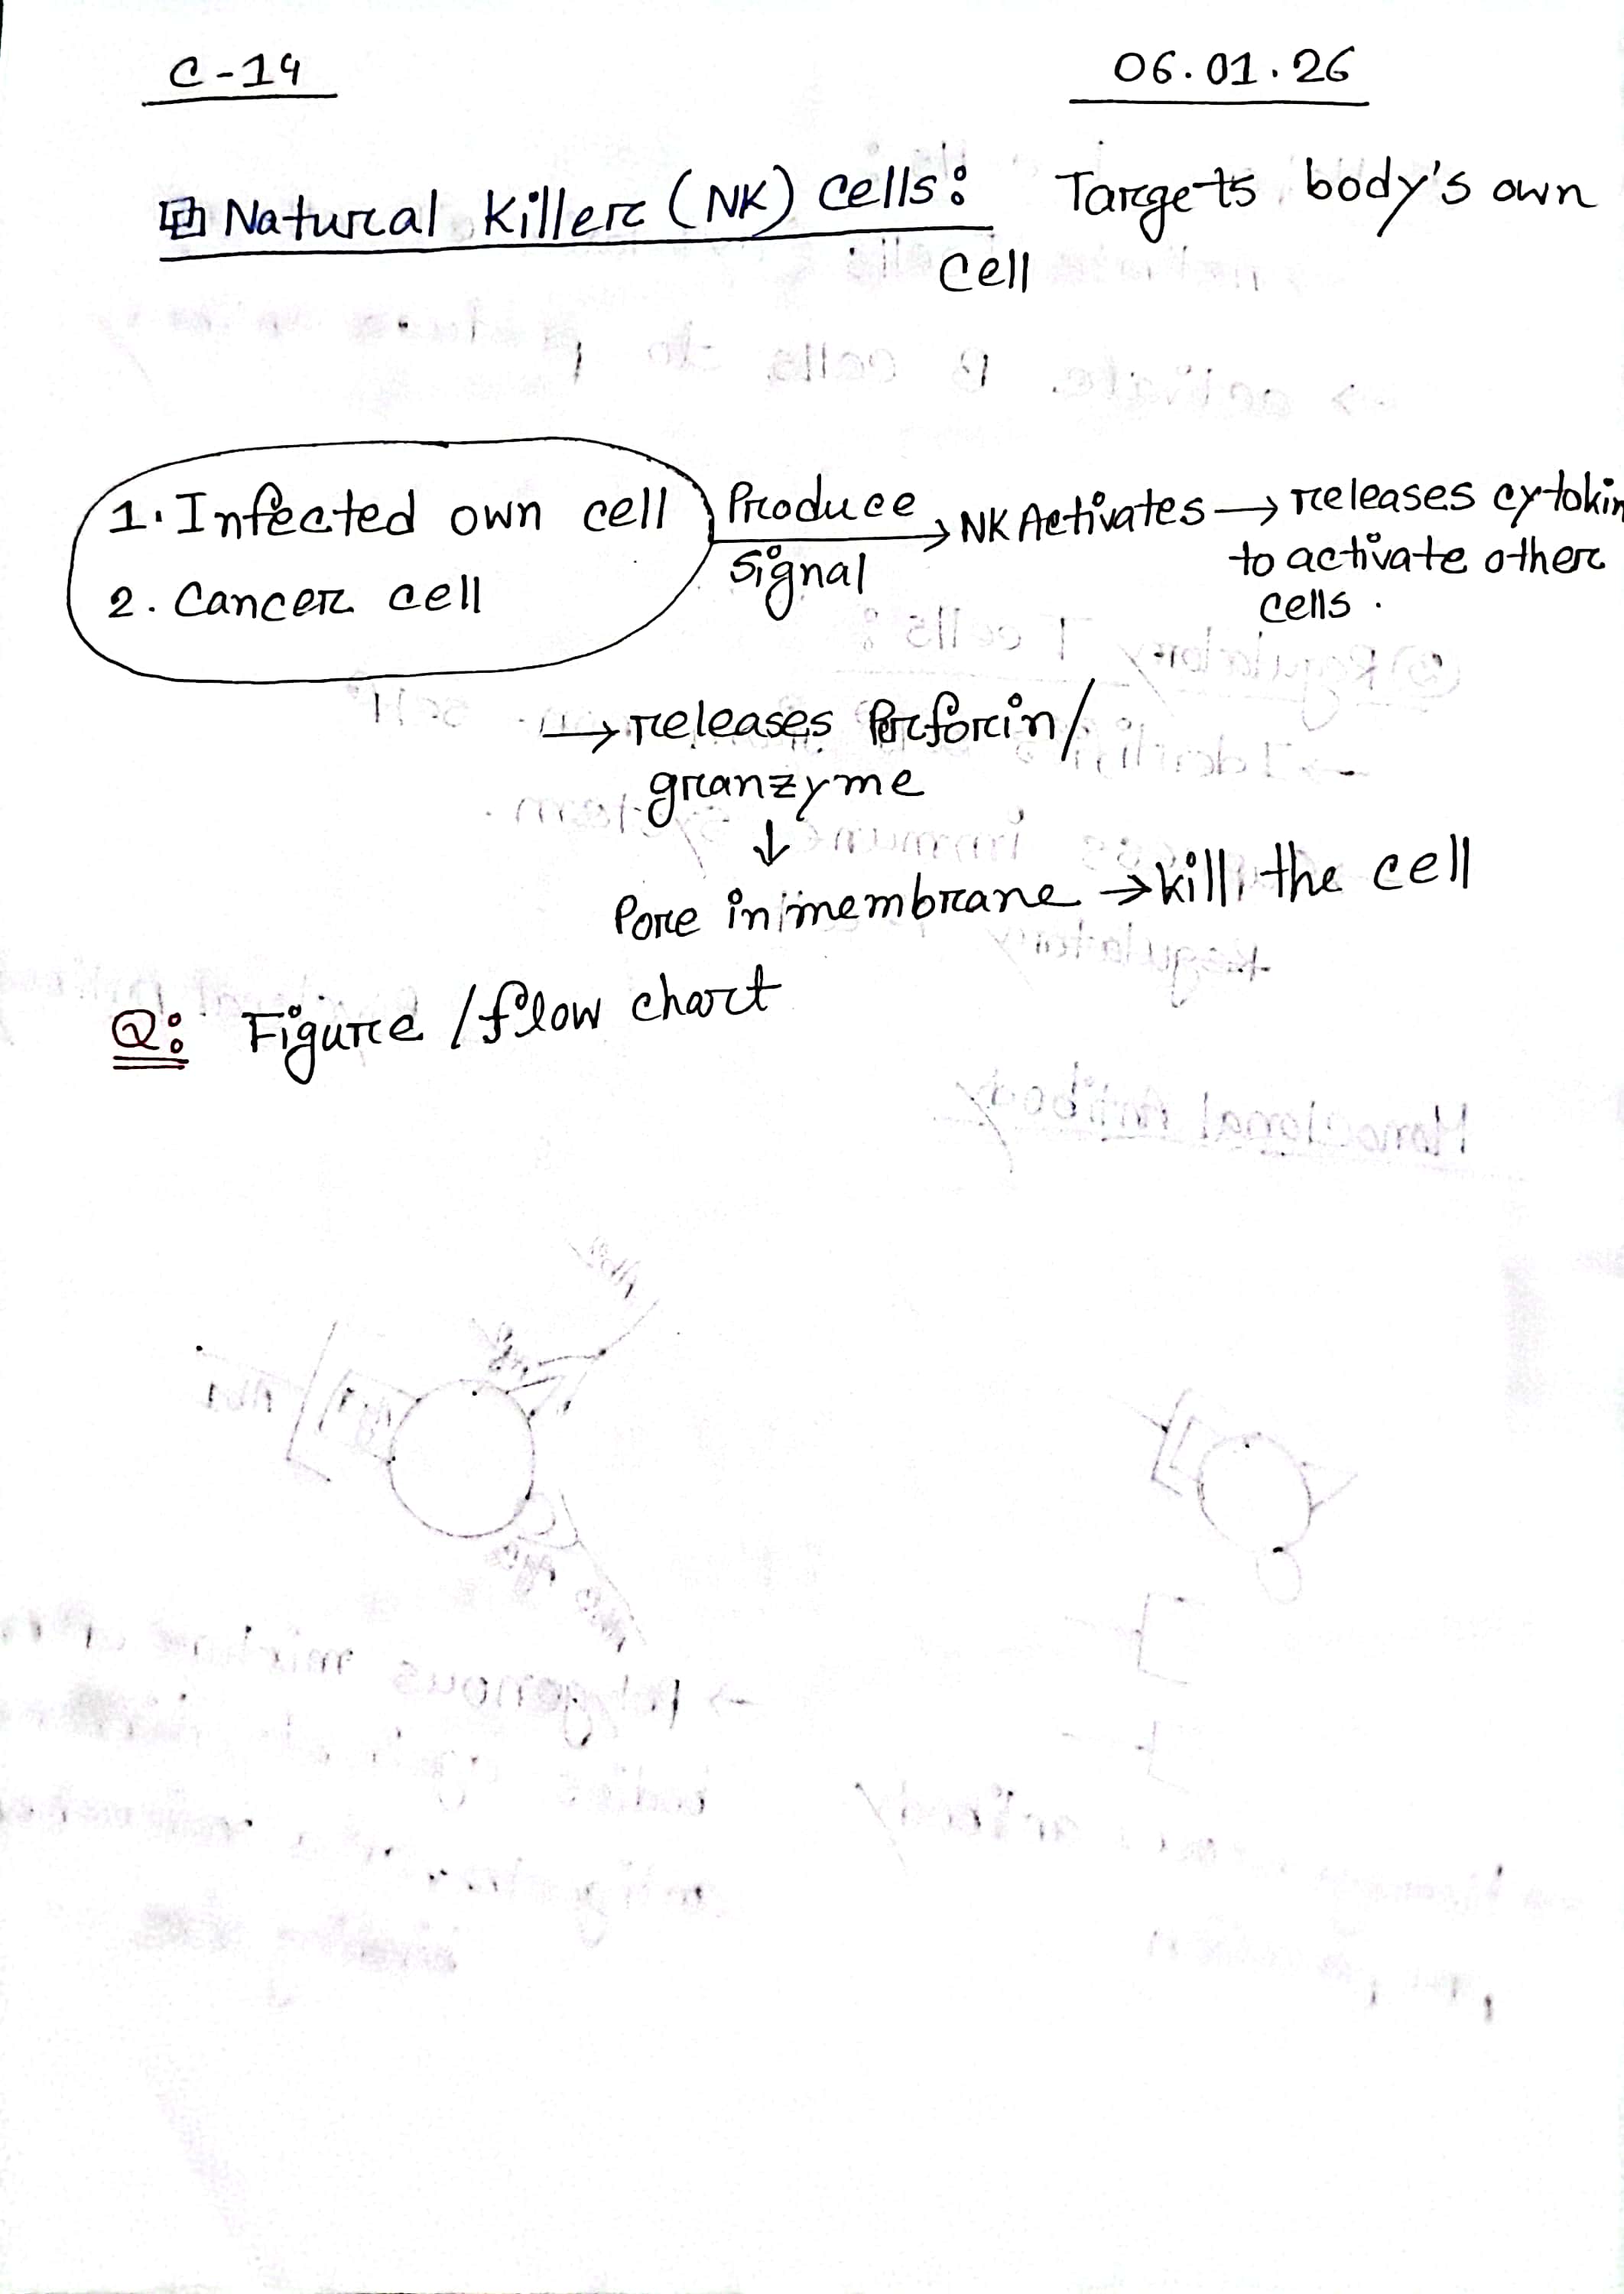 C-14
06.01.26
Natural Killer (NK) Cells: Targets body's own
Cell
1. Infected own cell
2. Cancer cell
Produce
Signal
→ NK Activates → releases cytokin
to activate other
cells.
→ releases Perforin/
granzyme
↓
Pore in membrane → kill the cell
Q: Figure / flow chart